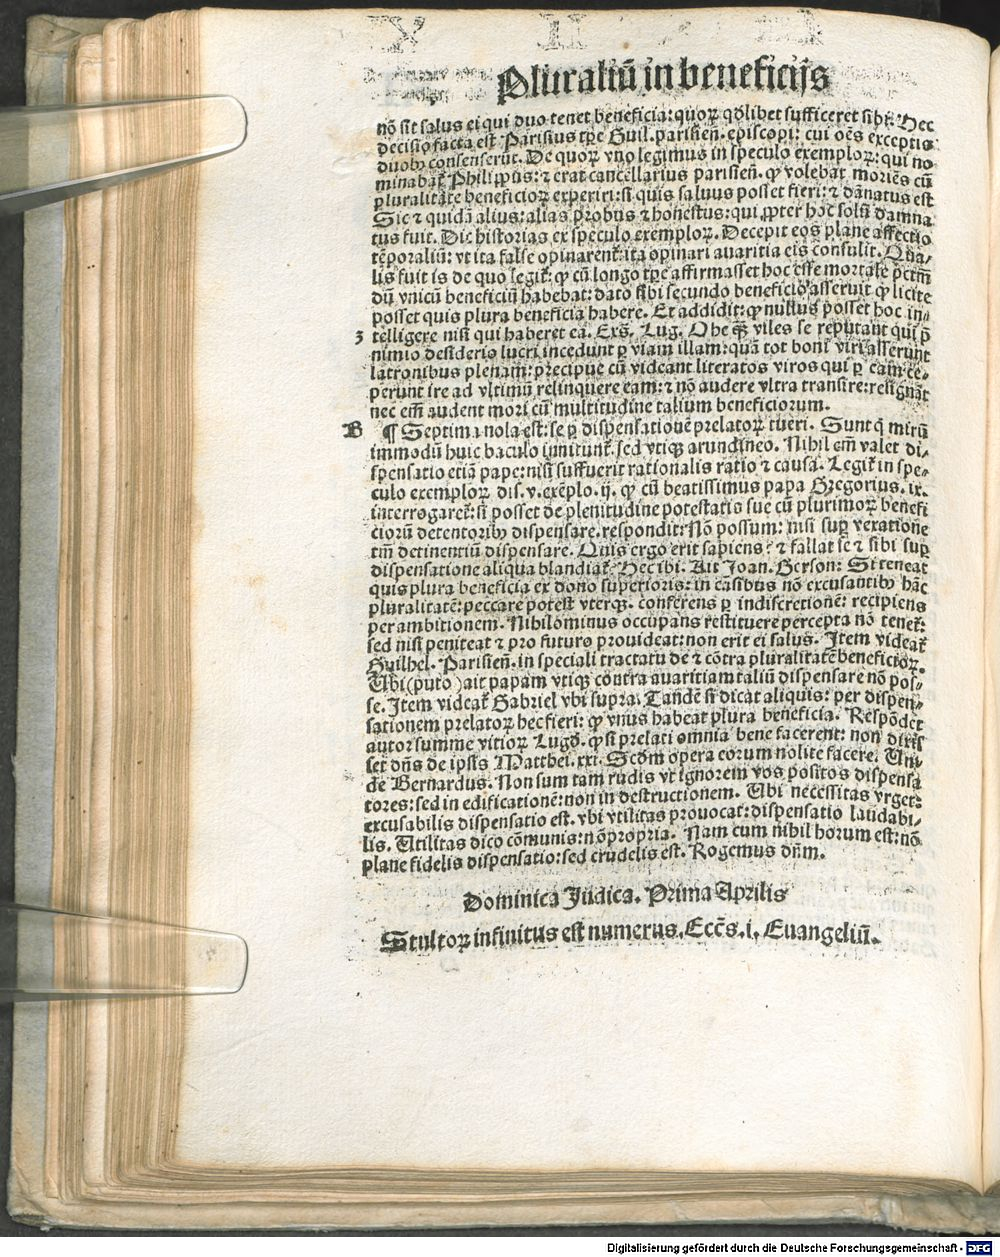 Pluraliū in beneficijs
nō sit salus ei qui duo tenet beneficia: quoꝝ qdlibet sufficeret sibi. Hec
decisio facta est Parisius tꝑe Guil. parisien̄. episcopi: cui oēs exceptis
duobꝰ consenserūt. De quoꝝ vno legimus in speculo exemploꝝ: qui no
minabat̄ Philippus: ⁊ erat cancellarius parisien̄. ꝙ volebat moriēs cū
pluralitate beneficioꝝ experiri: si quis saluus posset fieri: ⁊ dānatus est
Sic ⁊ quidā alius: alias probus ⁊ honestus: qui ꝓpter hoc solū damna
tus fuit. Dic historias ex speculo exemploꝝ. Decepit eos plane affectio
tēporaliū: vt ita false opinarent̄: ita opinari auaritia eis consulit. Qua-
lis fuit is de quo legit̄: ꝙ cū longo tꝑe affirmasset hoc esse mortale pctm̄
dū vnicū beneficiū habebat: dato sibi secundo beneficio asseruit ꝙ licite
posset quis plura beneficia habere. Et addidit: ꝙ nullus posset hoc in-
3 telligere nisi qui haberet ea. Exs̄. Lug. Ohe ꝙ̄ viles se reputant qui p̄
nimio desiderio lucri incedunt ꝑ viam illam: quā tot boni viri asserunt
latronibus plenam: precipue cū videant literatos viros qui ꝑ eam ce-
perunt ire ad vltimū relinquere eam: ⁊ nō audere vltra transire: resignāt
nec em̄ audent mori cū multitudine talium beneficiorum.
B ¶ Septima nola est: se ꝑ dispensationē prelatoꝝ tueri. Sunt q mirū
immodū huic baculo innitunt̄. sed vtiqꝫ arundineo. Nihil em̄ valet di-
spensatio etiā pape: nisi suffuerit rationalis ratio ⁊ causa. Legit̄ in spe-
culo exemploꝝ dis. v. exēplo. ij. ꝙ cū beatissimus papa Gregorius. ix.
interrogaret̄: si posset de plenitudine potestatis sue cū plurimoꝝ benefi
ciorū detentoribꝰ dispensare. respondit: Nō possum: nisi suꝑ vexatione
tm̄ detinentiū dispensare. Quis ergo erit sapiens? ⁊ fallat se ⁊ sibi suꝑ
dispensatione aliqua blandiat̄. Hec ibi. Ait Joan. Gerson: Si teneat
quis plura beneficia ex dono superioris: in casibus nō excusantibꝰ hāc
pluralitatē: peccare potest vterqꝫ. conferens ꝑ indiscretionē: recipiens
per ambitionem. Nihilominus occupans restituere percepta nō tenet̄:
sed nisi peniteat ⁊ pro futuro prouideat: non erit ei salus. Item videat̄
Guilhel. Parisien̄. in speciali tractatu de ⁊ cōtra pluralitatē beneficioꝝ.
Ubi (puto) ait papam vtiqꝫ contra auaritiam taliū dispensare nō pos-
se. Item videat̄ Gabriel vbi supra. Tandē si dicat aliquis: per dispen-
sationem prelatoꝝ hec fieri: ꝙ vnus habeat plura beneficia. Respōdet
autor summe vitioꝝ Lugd̄. ꝙ si prelati omnia bene facerent: non dixis
set dn̄s de ipsis Matthei. xxi. Scdm̄ opera eorum nolite facere. Un-
de Bernardus. Non sum tam rudis vt ignorem vos positos dispensa
tores: sed in edificationē: non in destructionem. Ubi necessitas vrget:
excusabilis dispensatio est. vbi vtilitas prouocat: dispensatio laudabi-
lis. Utilitas dico cōmunis: nō propria. Nam cum nihil horum est: nō
plane fidelis dispensatio: sed crudelis est. Rogemus dn̄m.
Dominica Judica. Prima Aprilis
Stultoꝝ infinitus est numerus. Eccs̄. i. Euangeliū.
Digitalisierung gefördert durch die Deutsche Forschungsgemeinschaft - DFG